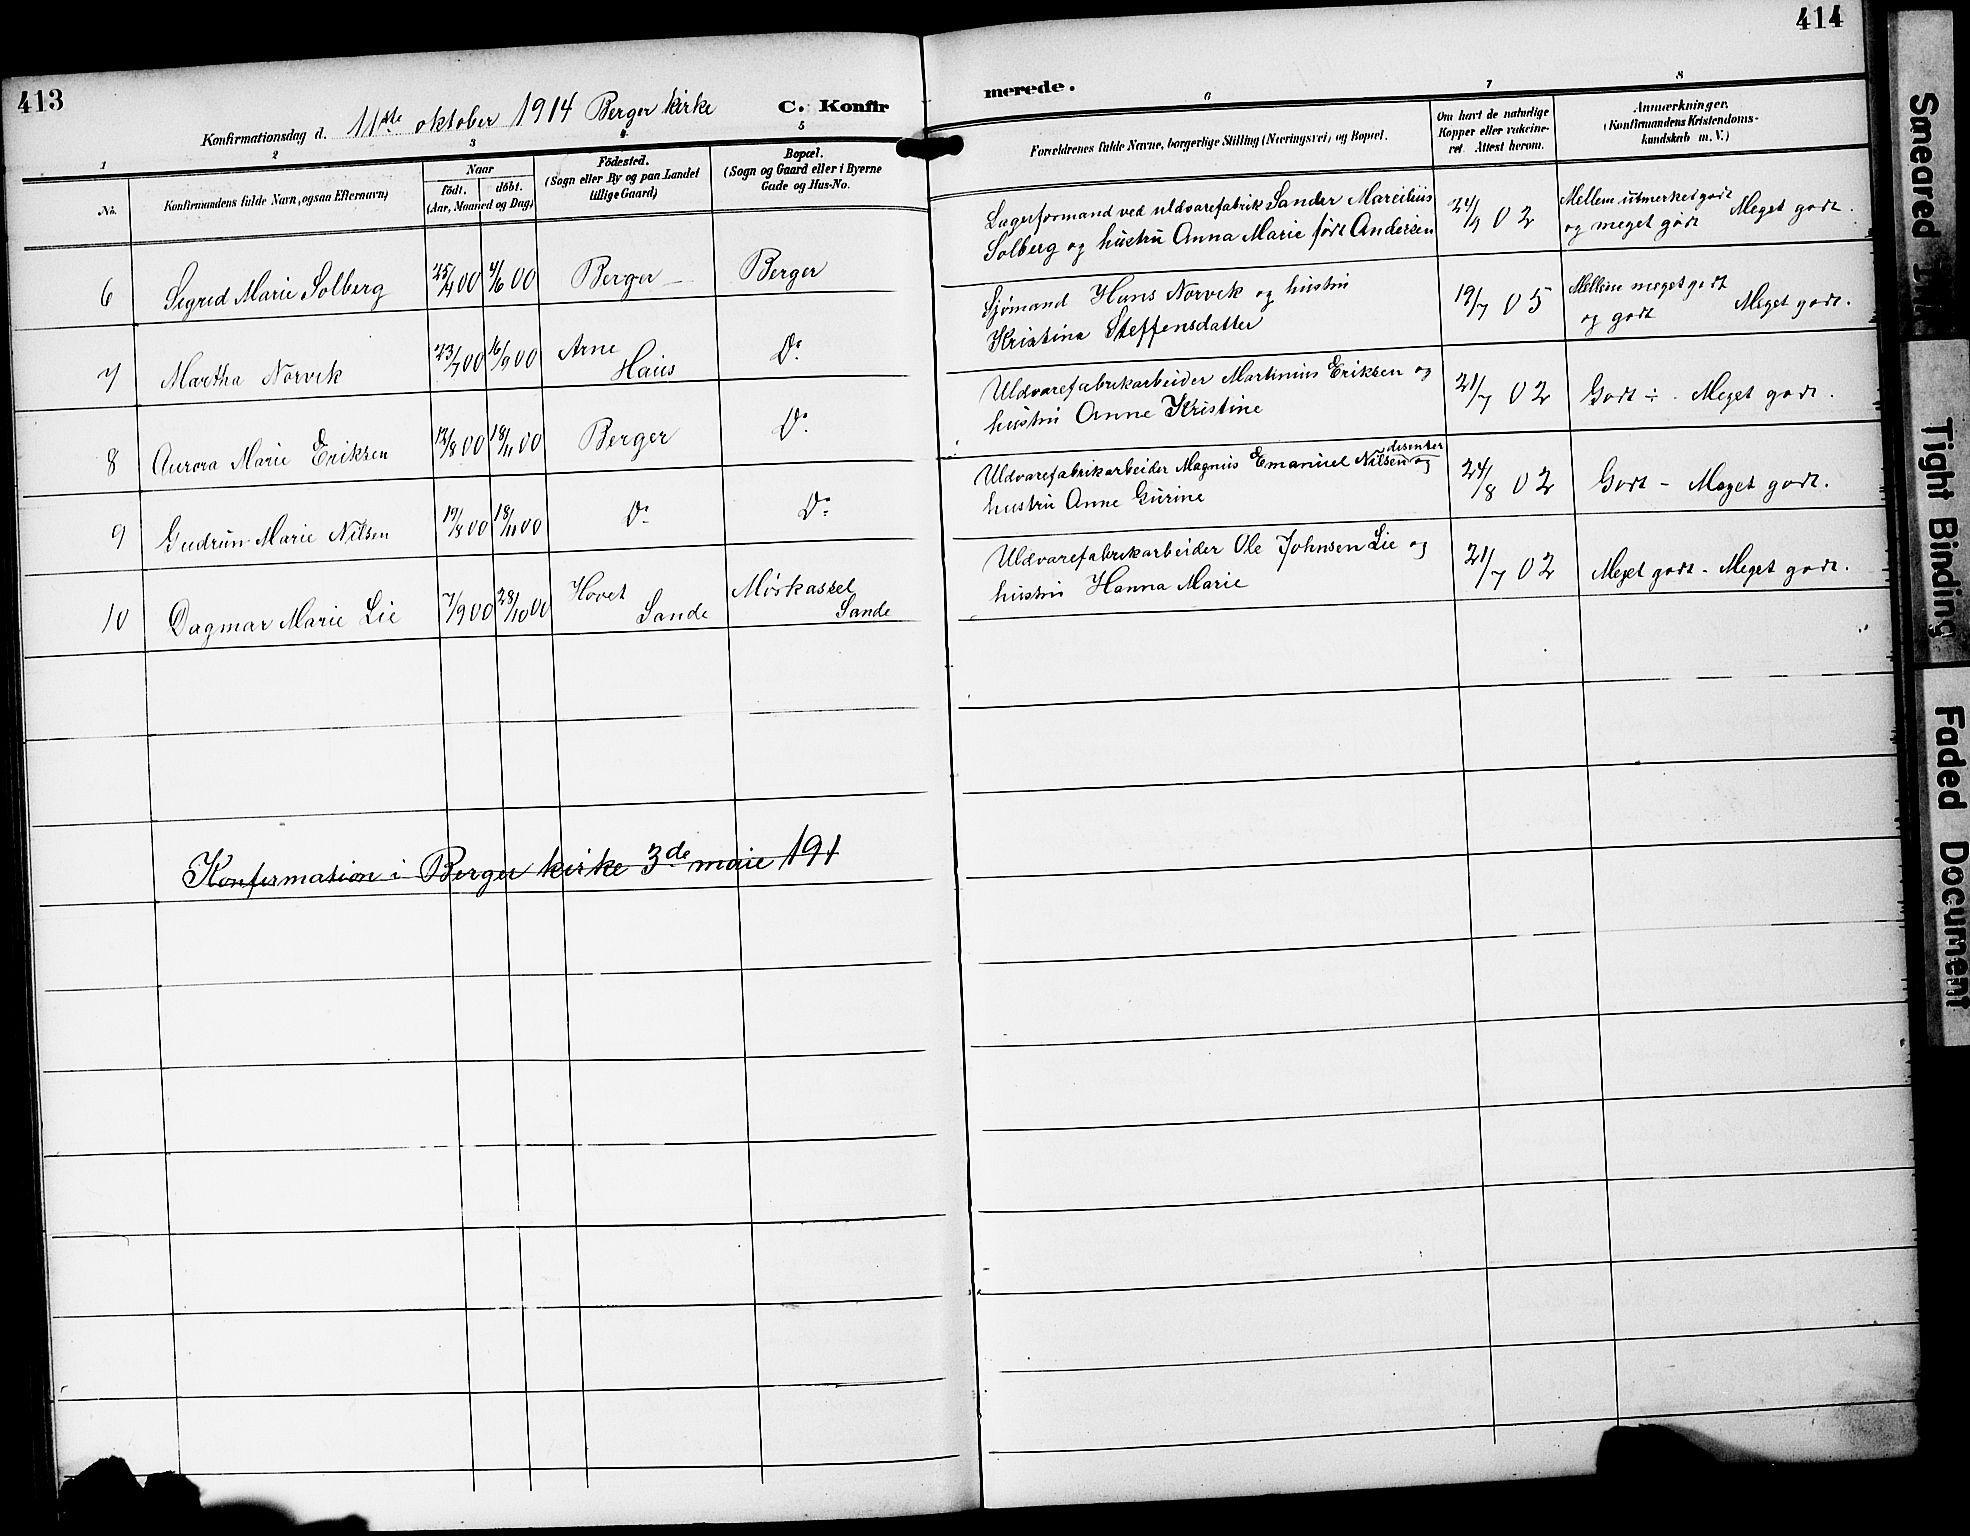 413
Konfirmationsdag d. 11te oktober 1914 Berger kirke C. Konfir
1 2 3 4 5
No. Konfirmandens fulde Navn, ogsaa Efternavn) Naar født. døbt. (Aar, Maaned og Dag) Fødested. (Sogn eller By og paa Landet tillige Gaard) Bopæl. (Sogn og Gaard eller i Byerne Gade og Hus-No.
6 Sigrid Marie Solberg 25/4 00 4/6 00 Berger Berger
7 Martha Norvik 23/7 00 16/9 00 Arne Haus Do
8 Aurora Marie Eriksen 12/8 00 18/11 00 Berger Do
9 Gudrun Marie Nilsen 19/8 00 18/11 00 Do Do
10 Dagmar Marie Lie 7/9 00 28/10 00 Hovet Sande Mørkassel Sande
Konfirmation i Berger kirke 3de maie 191
414
merede.
6 7 8
Forældrenes fulde Navne, borgerlige Stilling (Næringsvei) og Bopæl. Om havt de naturlige Kopper eller vakcineret. Attest herom. Anmærkninger. (Konfirmandens Kristendomskundskab m. V.)
Lagerformand ved uldvarefabrik Sander Marcilius
Solberg og hustru Anna Marie født Andersen 24/9 02 Mellem utmerket godt og meget godt Meget godt.
Sjømand Hans Norvik og hustru
Kristina Steffensdatter 19/7 05 Mellem meget godt og godt Meget godt.
Uldvarefabrikarbeider Martinius Eriksen og
hustru Anne Kristine 21/7 02 Godt ÷. Meget godt.
Uldvarefabrikarbeider Magnus Emanuel Nilsen disenter og
hustru Anne Gurine 24/8 02 Godt - Meget godt.
Uldvarefabrikarbeider Ole Johnsen Lie og
hustru Hanna Marie 21/7 02 Meget godt - Meget godt.
Smeared
Tight Binding
Faded Document